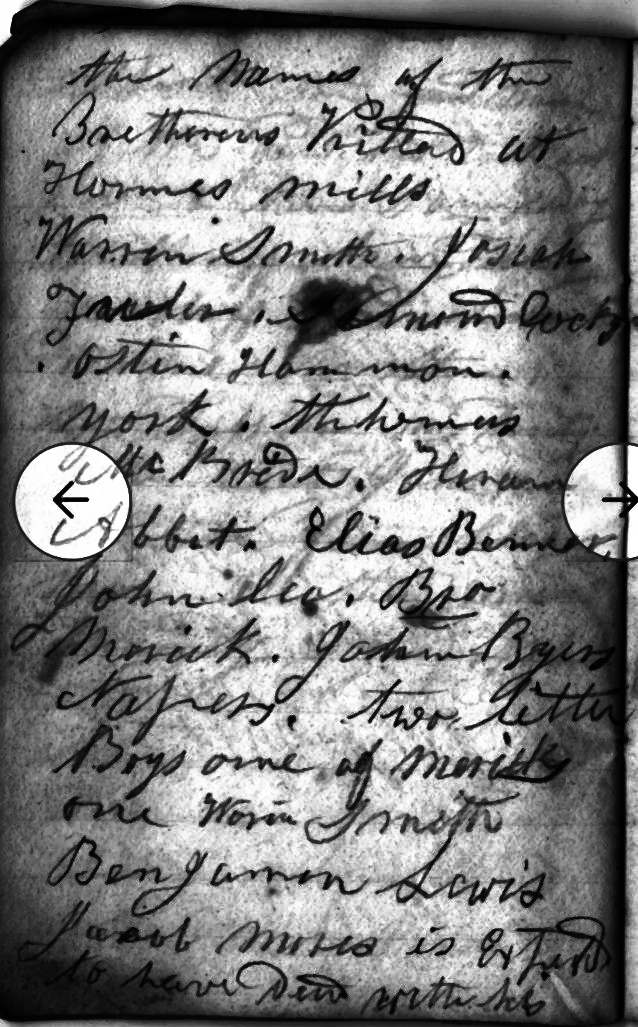 the Names of the
Bretherens Killed at
Hormes mills
Warren Smith. Josiah
Fuller.
. ostin Hammon.
york. thhomas
Mc Bride. Hiram
Abbit. Elias Benner.
John Lee. Bro
Mirick. John Byers
Napers. two littler
Boys one of Mirick
one Worin Smith
Benjamon Lewis
Jacob Mires is
to have Died with his